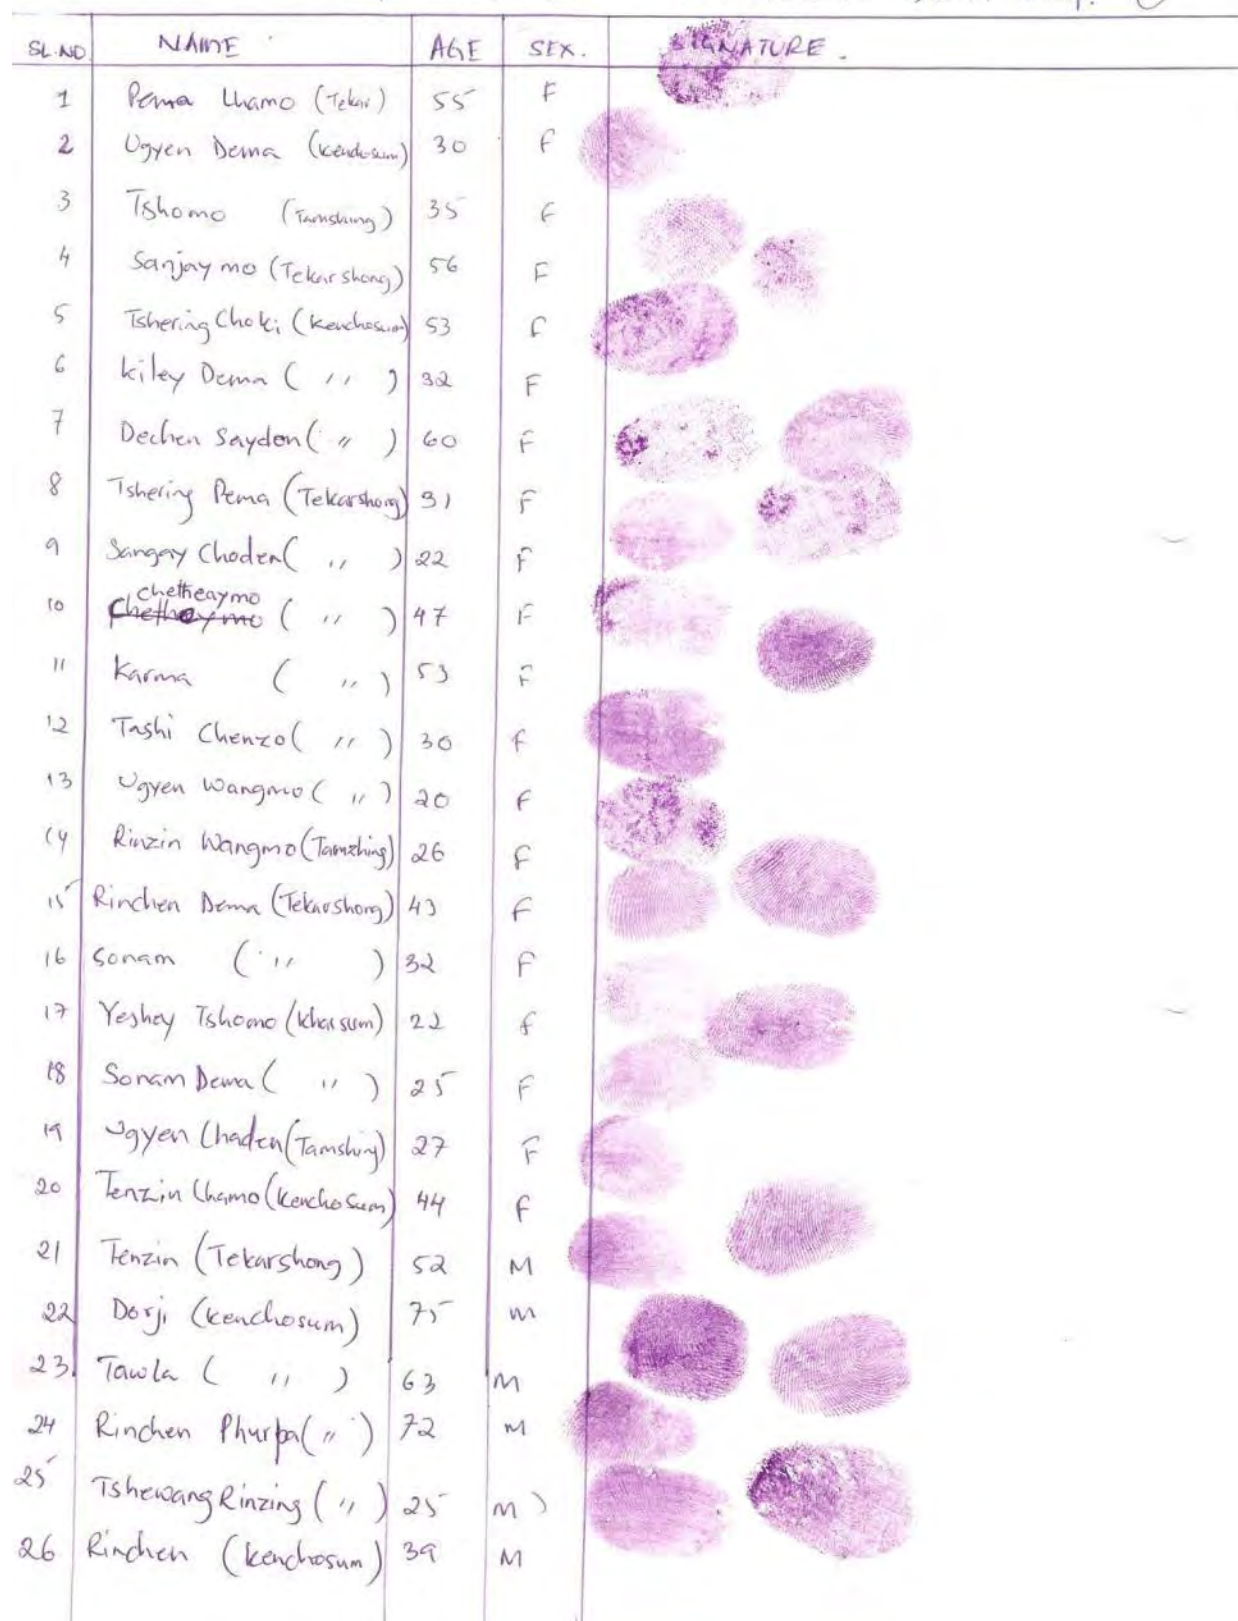 SL.NO NAME AGE SEX. SIGNATURE.
1 Pema Lhamo (Tekar) 55 F
2 Ugyen Dema (kenchosum) 30 F
3 Tshomo (Tamshing) 35 F
4 Sanjay mo (Tekarshong) 56 F
5 Tshering Choki (kenchosum) 53 F
6 kiley Dema ( " ) 32 F
7 Dechen Saydon ( " ) 60 F
8 Tshering Pema (Tekarshong) 31 F
9 Sangay Choden ( " ) 22 F
chetheaymo
10 ( " ) 47 F
11 Karma ( " ) 53 F
12 Tashi Chenzo ( " ) 30 F
13 Ugyen Wangmo ( " ) 20 F
14 Rinzin Wangmo (Tamzhing) 26 F
15 Rinchen Dema (Tekarshong) 43 F
16 Sonam ( " ) 32 F
17 Yeshey Tshomo (kharsum) 22 f
18 Sonam Dema ( " ) 25 F
19 Ugyen Choden (Tamshing) 27 F
20 Tenzin Lhamo (kenchosum) 44 F
21 Tenzin (Tekarshong) 52 M
22 Dorji (kenchosum) 75 m
23 Tawla ( " ) 63 M
24 Rinchen Phurpa ( " ) 72 M
25 Tshewang Rinzing ( " ) 25 M )
26 Rinchen (kenchosum) 39 M